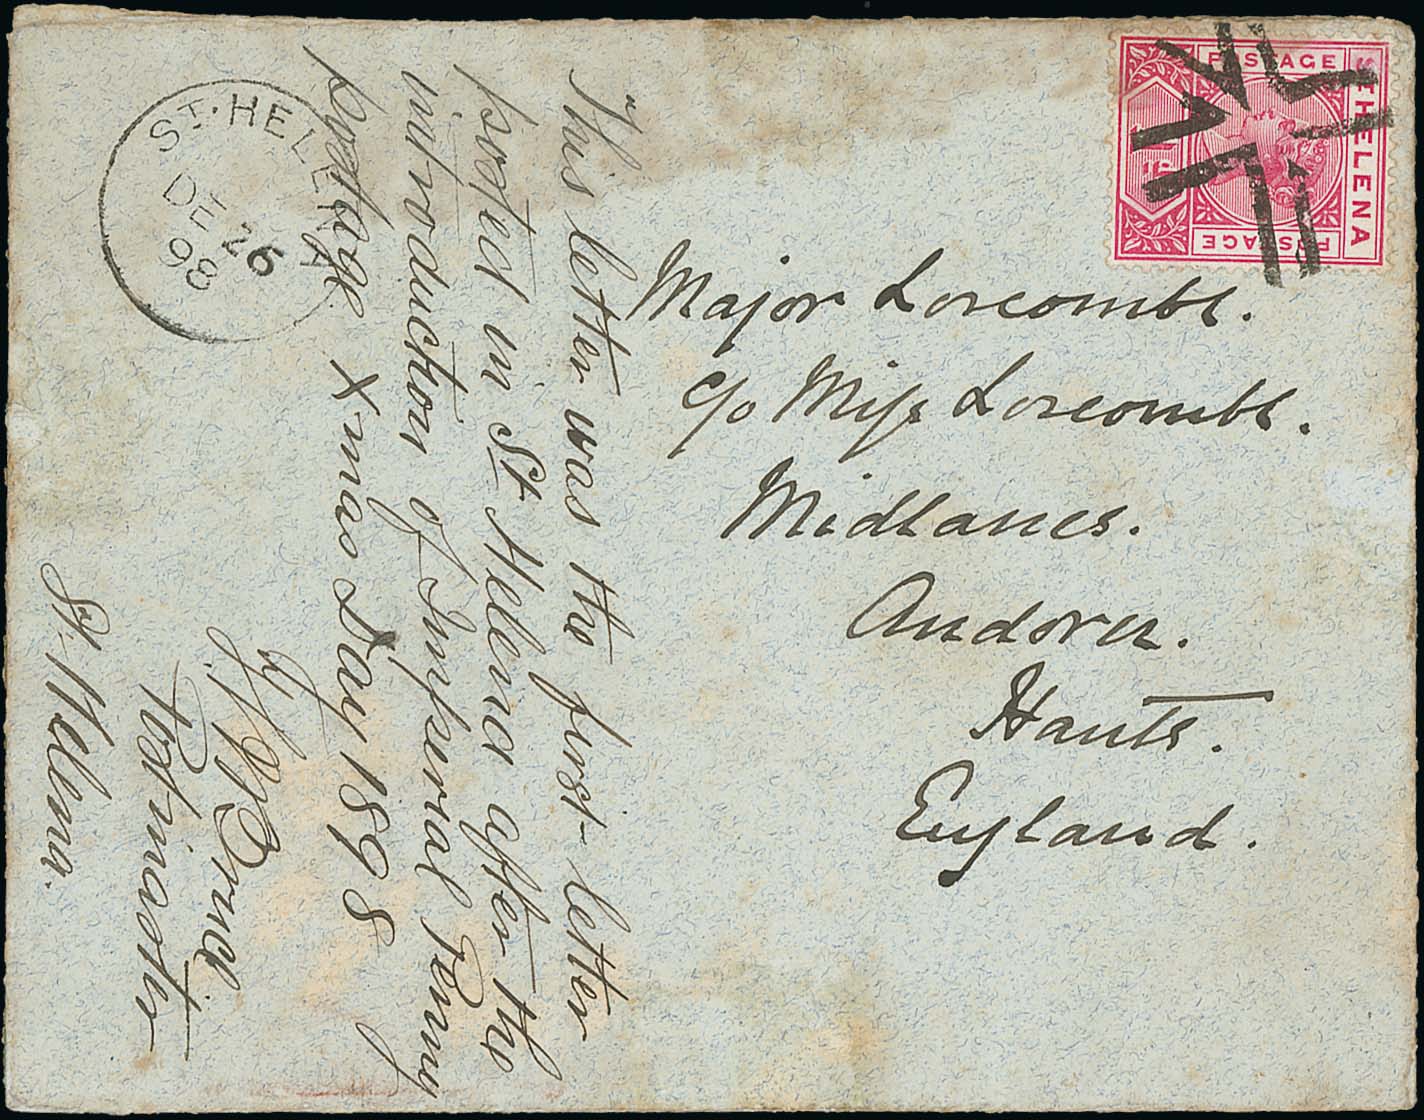 ST. HELENA
DE 26
98
POSTAGE
POSTAGE
ST HELENA
Major Loscombe.
c/o Miss Loscombe.
Midlanes.
Andover.
Hants.
England.
This letter was the first letter
posted in St. Helena after the
introduction of Imperial Penny
Postage Xmas Day 1898
Postmaster
St. Helena.